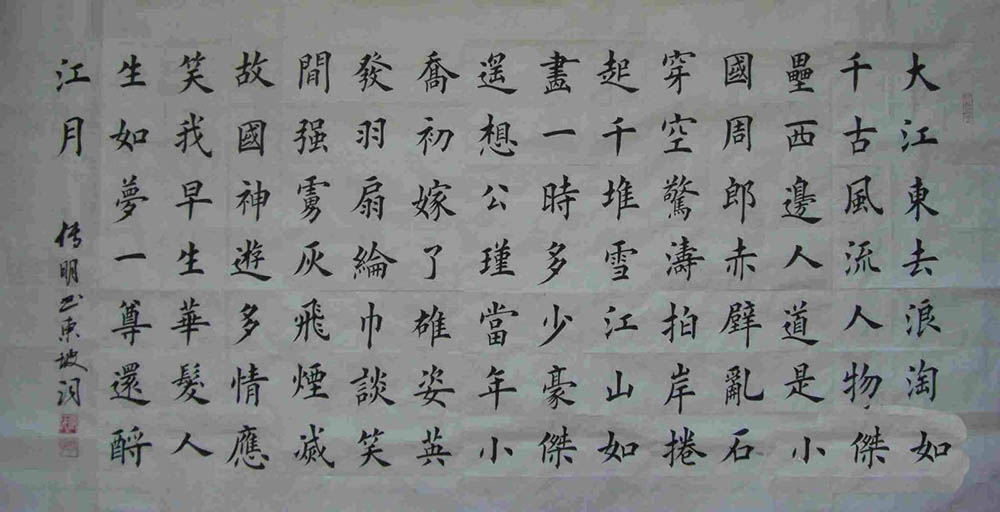 大江東去浪淘如
千古風流人物傑
壘西邊人道是小
國周郎赤壁亂石
穿空驚濤拍岸捲
起千堆雪江山如
畫一時多少豪傑
遥想公瑾當年小
喬初嫁了雄姿英
發羽扇綸巾談笑
間强虜灰飛煙滅
故國神遊多情應
笑我早生華髮人
生如夢一尊還酹
江月
傳明书東坡词